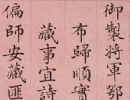 御製將軍鄂
布歸順實
藏事宜詩
偏師安藏匪